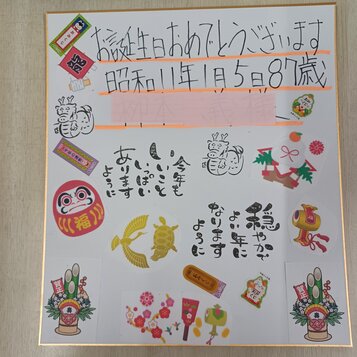 お誕生日おめでとうございます
昭和11年1月5日87歳
今年も
いいこと
いっぱい
あります
ように
穏やかで
よい年に
なります
ように
福